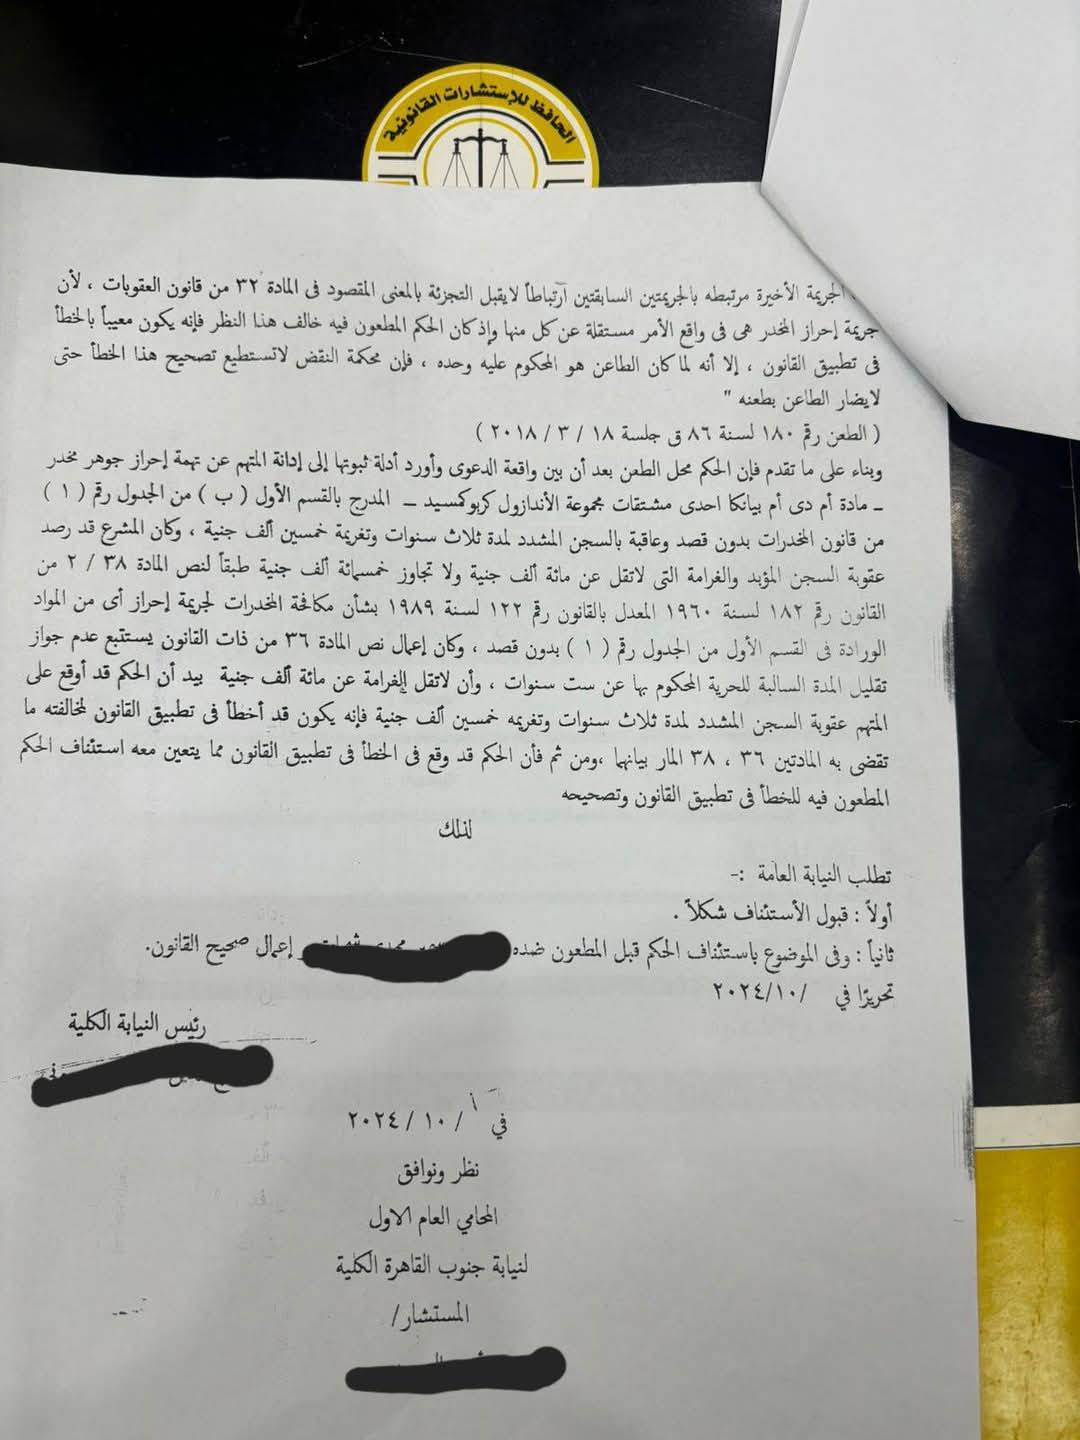 الحافظ للإستشارات القانونية
الجريمة الأخيرة مرتبطه بالجريمتين السابقتين آرتباطاً لايقبل التجزئة بالمعنى المقصود فى المادة ٣٢ من قانون العقوبات ، لأن
جريمة إحراز المخدر هى فى واقع الأمر مستقلة عن كل منها وإذ كان الحكم المطعون فيه خالف هذا النظر فإنه يكون معيباً بالخطأ
فى تطبيق القانون ، إلا أنه لما كان الطاعن هو المحكوم عليه وحده ، فإن محكمة النقض لاتستطيع تصحيح هذا الخطأ حتى
لايضار الطاعن بطعنه "
( الطعن رقم ١٨٠ لسنة ٨٦ ق جلسة ١٨ / ٣ / ٢٠١٨ )
وبناء على ما تقدم فإن الحكم محل الطعن بعد أن بين واقعة الدعوى وأورد أدلة ثبوتها إلى إدانة المتهم عن تهمة إحراز جوهر مخدر
ــ مادة أم دى أم بيانكا احدى مشتقات مجموعة الأندازول كربوكمسيد ــ المدرج بالقسم الأول ( ب ) من الجدول رقم ( ١ )
من قانون المخدرات بدون قصد وعاقبة بالسجن المشدد لمدة ثلاث سنوات وتغريمة خمسين ألف جنية ، وكان المشرع قد رصد
عقوبة السجن المؤبد والغرامة التى لاتقل عن مائة ألف جنية ولا تجاوز خمسمائة ألف جنية طبقاً لنص المادة ٣٨ / ٢ من
القانون رقم ١٨٢ لسنة ١٩٦٠ المعدل بالقانون رقم ١٢٢ لسنة ١٩٨٩ بشأن مكافحة المخدرات لجريمة إحراز أى من المواد
الورادة فى القسم الأول من الجدول رقم ( ١ ) بدون قصد ، وكان إعمال نص المادة ٣٦ من ذات القانون يستتبع عدم جواز
تقليل المدة السالبة للحرية المحكوم بها عن ست سنوات ، وأن لاتقل الغرامة عن مائة ألف جنية بيد أن الحكم قد أوقع على
المتهم عقوبة السجن المشدد لمدة ثلاث سنوات وتغريمه خمسين ألف جنية فإنه يكون قد أخطأ فى تطبيق القانون لمخالفته ما
تقضى به المادتين ٣٦ ، ٣٨ المار بيانهما ،ومن ثم فأن الحكم قد وقع فى الخطأ فى تطبيق القانون مما يتعين معه استئناف الحكم
المطعون فيه للخطأ فى تطبيق القانون وتصحيحه
لذلك
تطلب النيابة العامة :-
أولاً : قبول الأستئناف شكلاً .
ثانياً : وفى الموضوع باستئناف الحكم قبل المطعون ضده إعمال صحيح القانون.
تحريرًا في / ٢٠٢٤/١٠
رئيس النيابة الكلية
في / ١٠ / ٢٠٢٤
نظر ونوافق
المحامي العام الاول
لنيابة جنوب القاهرة الكلية
المستشار/